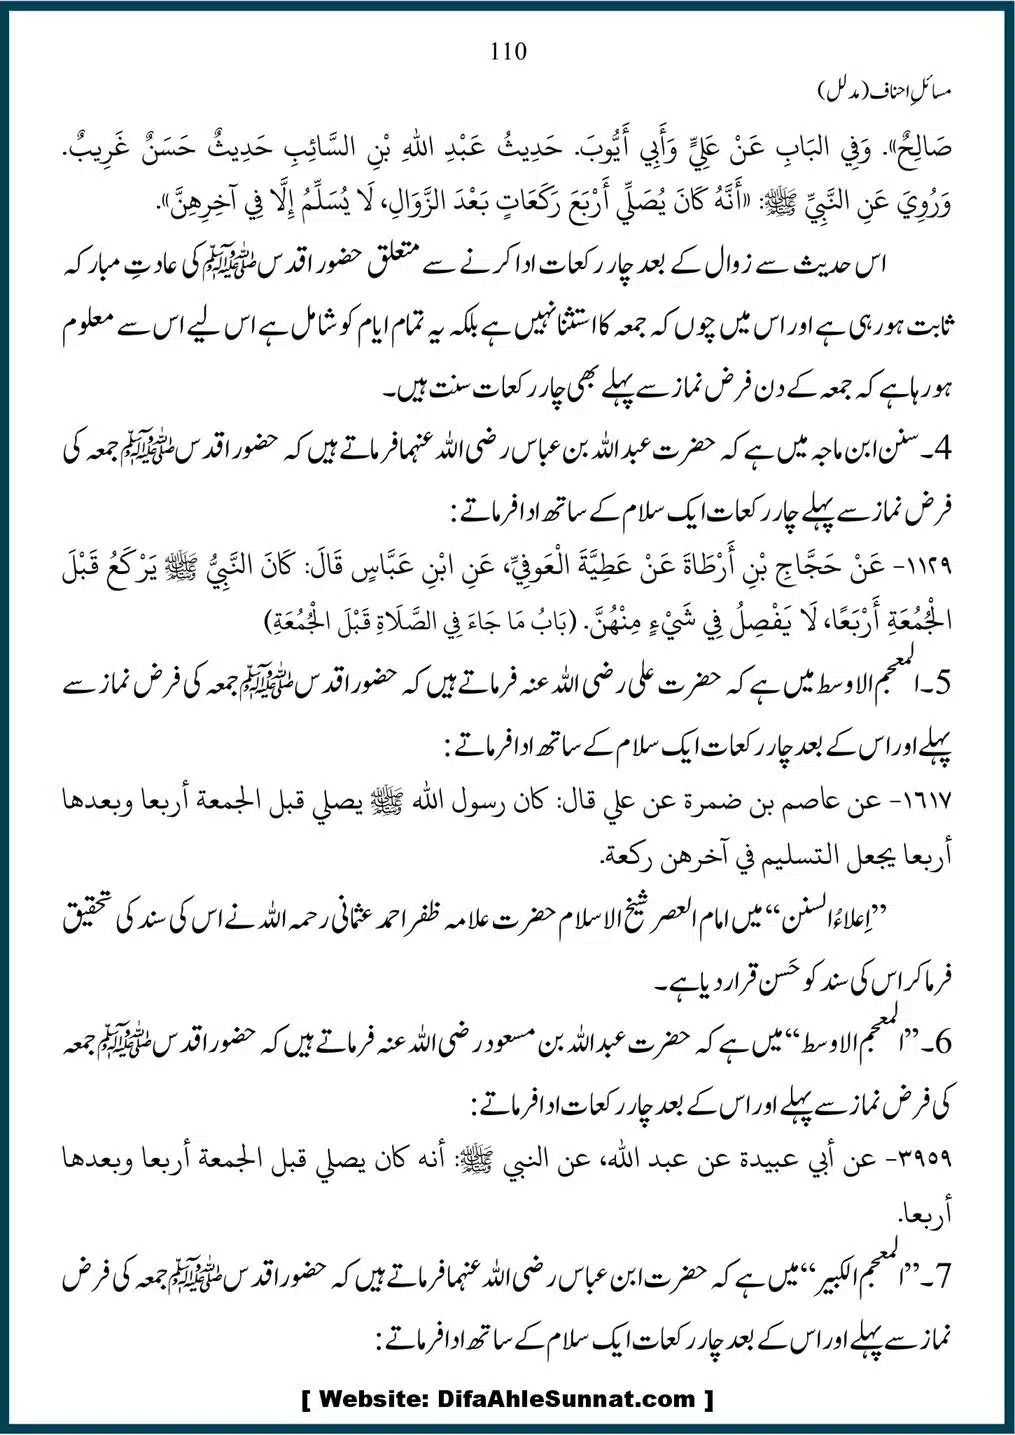 110
مسائلِ احناف (مدلل)
صَالِحٌ». وَفِي البَابِ عَنْ عَلِيٍّ وَأَبِي أَيُّوبَ. حَدِيثُ عَبْدِ اللهِ بْنِ السَّائِبِ حَدِيثٌ حَسَنٌ غَرِيبٌ.
وَرُوِيَ عَنِ النَّبِيِّ ﷺ: «أَنَّهُ كَانَ يُصَلِّي أَرْبَعَ رَكَعَاتٍ بَعْدَ الزَّوَالِ، لَا يُسَلِّمُ إِلَّا فِي آخِرِهِنَّ».
اس حدیث سے زوال کے بعد چار رکعات ادا کرنے سے متعلق حضور اقدس ﷺ کی عادتِ مبارکہ
ثابت ہورہی ہے اور اس میں چوں کہ جمعہ کا استثنا نہیں ہے بلکہ یہ تمام ایام کو شامل ہے اس لیے اس سے معلوم
ہورہا ہے کہ جمعہ کے دن فرض نماز سے پہلے بھی چار رکعات سنت ہیں۔
4۔ سنن ابن ماجہ میں ہے کہ حضرت عبد اللہ بن عباس رضی اللہ عنہما فرماتے ہیں کہ حضور اقدس ﷺ جمعہ کی
فرض نماز سے پہلے چار رکعات ایک سلام کے ساتھ ادا فرماتے:
١١٢٩- عَنْ حَجَّاجِ بْنِ أَرْطَاةَ عَنْ عَطِيَّةَ الْعَوفِيِّ، عَنِ ابْنِ عَبَّاسٍ قَالَ: كَانَ النَّبِيُّ ﷺ يَرْكَعُ قَبْلَ
الْجُمُعَةِ أَرْبَعًا، لَا يَفْصِلُ فِي شَيْءٍ مِنْهُنَّ. (بَابُ مَا جَاءَ فِي الصَّلَاةِ قَبْلَ الْجُمُعَةِ)
5۔ المعجم الاوسط میں ہے کہ حضرت علی رضی اللہ عنہ فرماتے ہیں کہ حضور اقدس ﷺ جمعہ کی فرض نماز سے
پہلے اور اس کے بعد چار رکعات ایک سلام کے ساتھ ادا فرماتے:
١٦١٧- عن عاصم بن ضمرة عن علي قال: كان رسول الله ﷺ يصلي قبل الجمعة أربعا وبعدها
أربعا يجعل التسليم في آخرهن ركعة.
’’اِعلاءُ السنن‘‘ میں امام العصر شیخ الاسلام حضرت علامہ ظفر احمد عثمانی رحمہ اللہ نے اس کی سند کی تحقیق
فرما کر اس کی سند کو حَسن قرار دیا ہے۔
6۔ ’’المعجم الاوسط‘‘ میں ہے کہ حضرت عبد اللہ بن مسعود رضی اللہ عنہ فرماتے ہیں کہ حضور اقدس ﷺ جمعہ
کی فرض نماز سے پہلے اور اس کے بعد چار رکعات ادا فرماتے:
٣٩٥٩- عن أبي عبيدة عن عبد الله، عن النبي ﷺ: أنه كان يصلي قبل الجمعة أربعا وبعدها
أربعا.
7۔ ’’المعجم الکبیر‘‘ میں ہے کہ حضرت ابن عباس رضی اللہ عنہما فرماتے ہیں کہ حضور اقدس ﷺ جمعہ کی فرض
نماز سے پہلے اور اس کے بعد چار رکعات ایک سلام کے ساتھ ادا فرماتے:
[ Website: DifaAhleSunnat.com ]